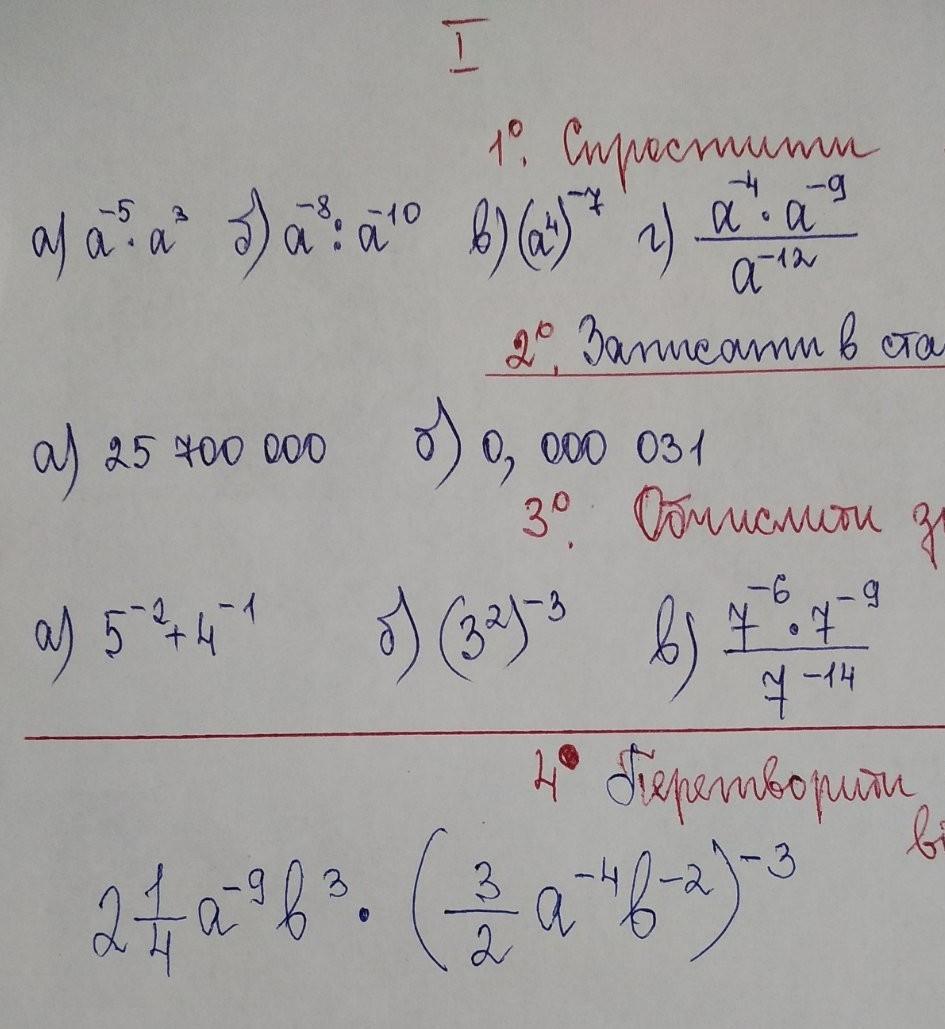 I
1°. Спростити
а) a⁻⁵ · a³ б) a⁻⁸ : a⁻¹⁰ в) (a⁴)⁻⁷ г) (a⁻⁴ · a⁻⁹)/a⁻¹²
2°. Записати в ста
а) 25 700 000 б) 0, 000 031
3°. Обчислити зн
а) 5⁻² + 4⁻¹ б) (3²)⁻³ в) (7⁻⁶ · 7⁻⁹)/7⁻¹⁴
4• Перетворити
ві
2 1/4 a⁻⁹ b³ · (3/2 a⁻⁴ b⁻²)⁻³